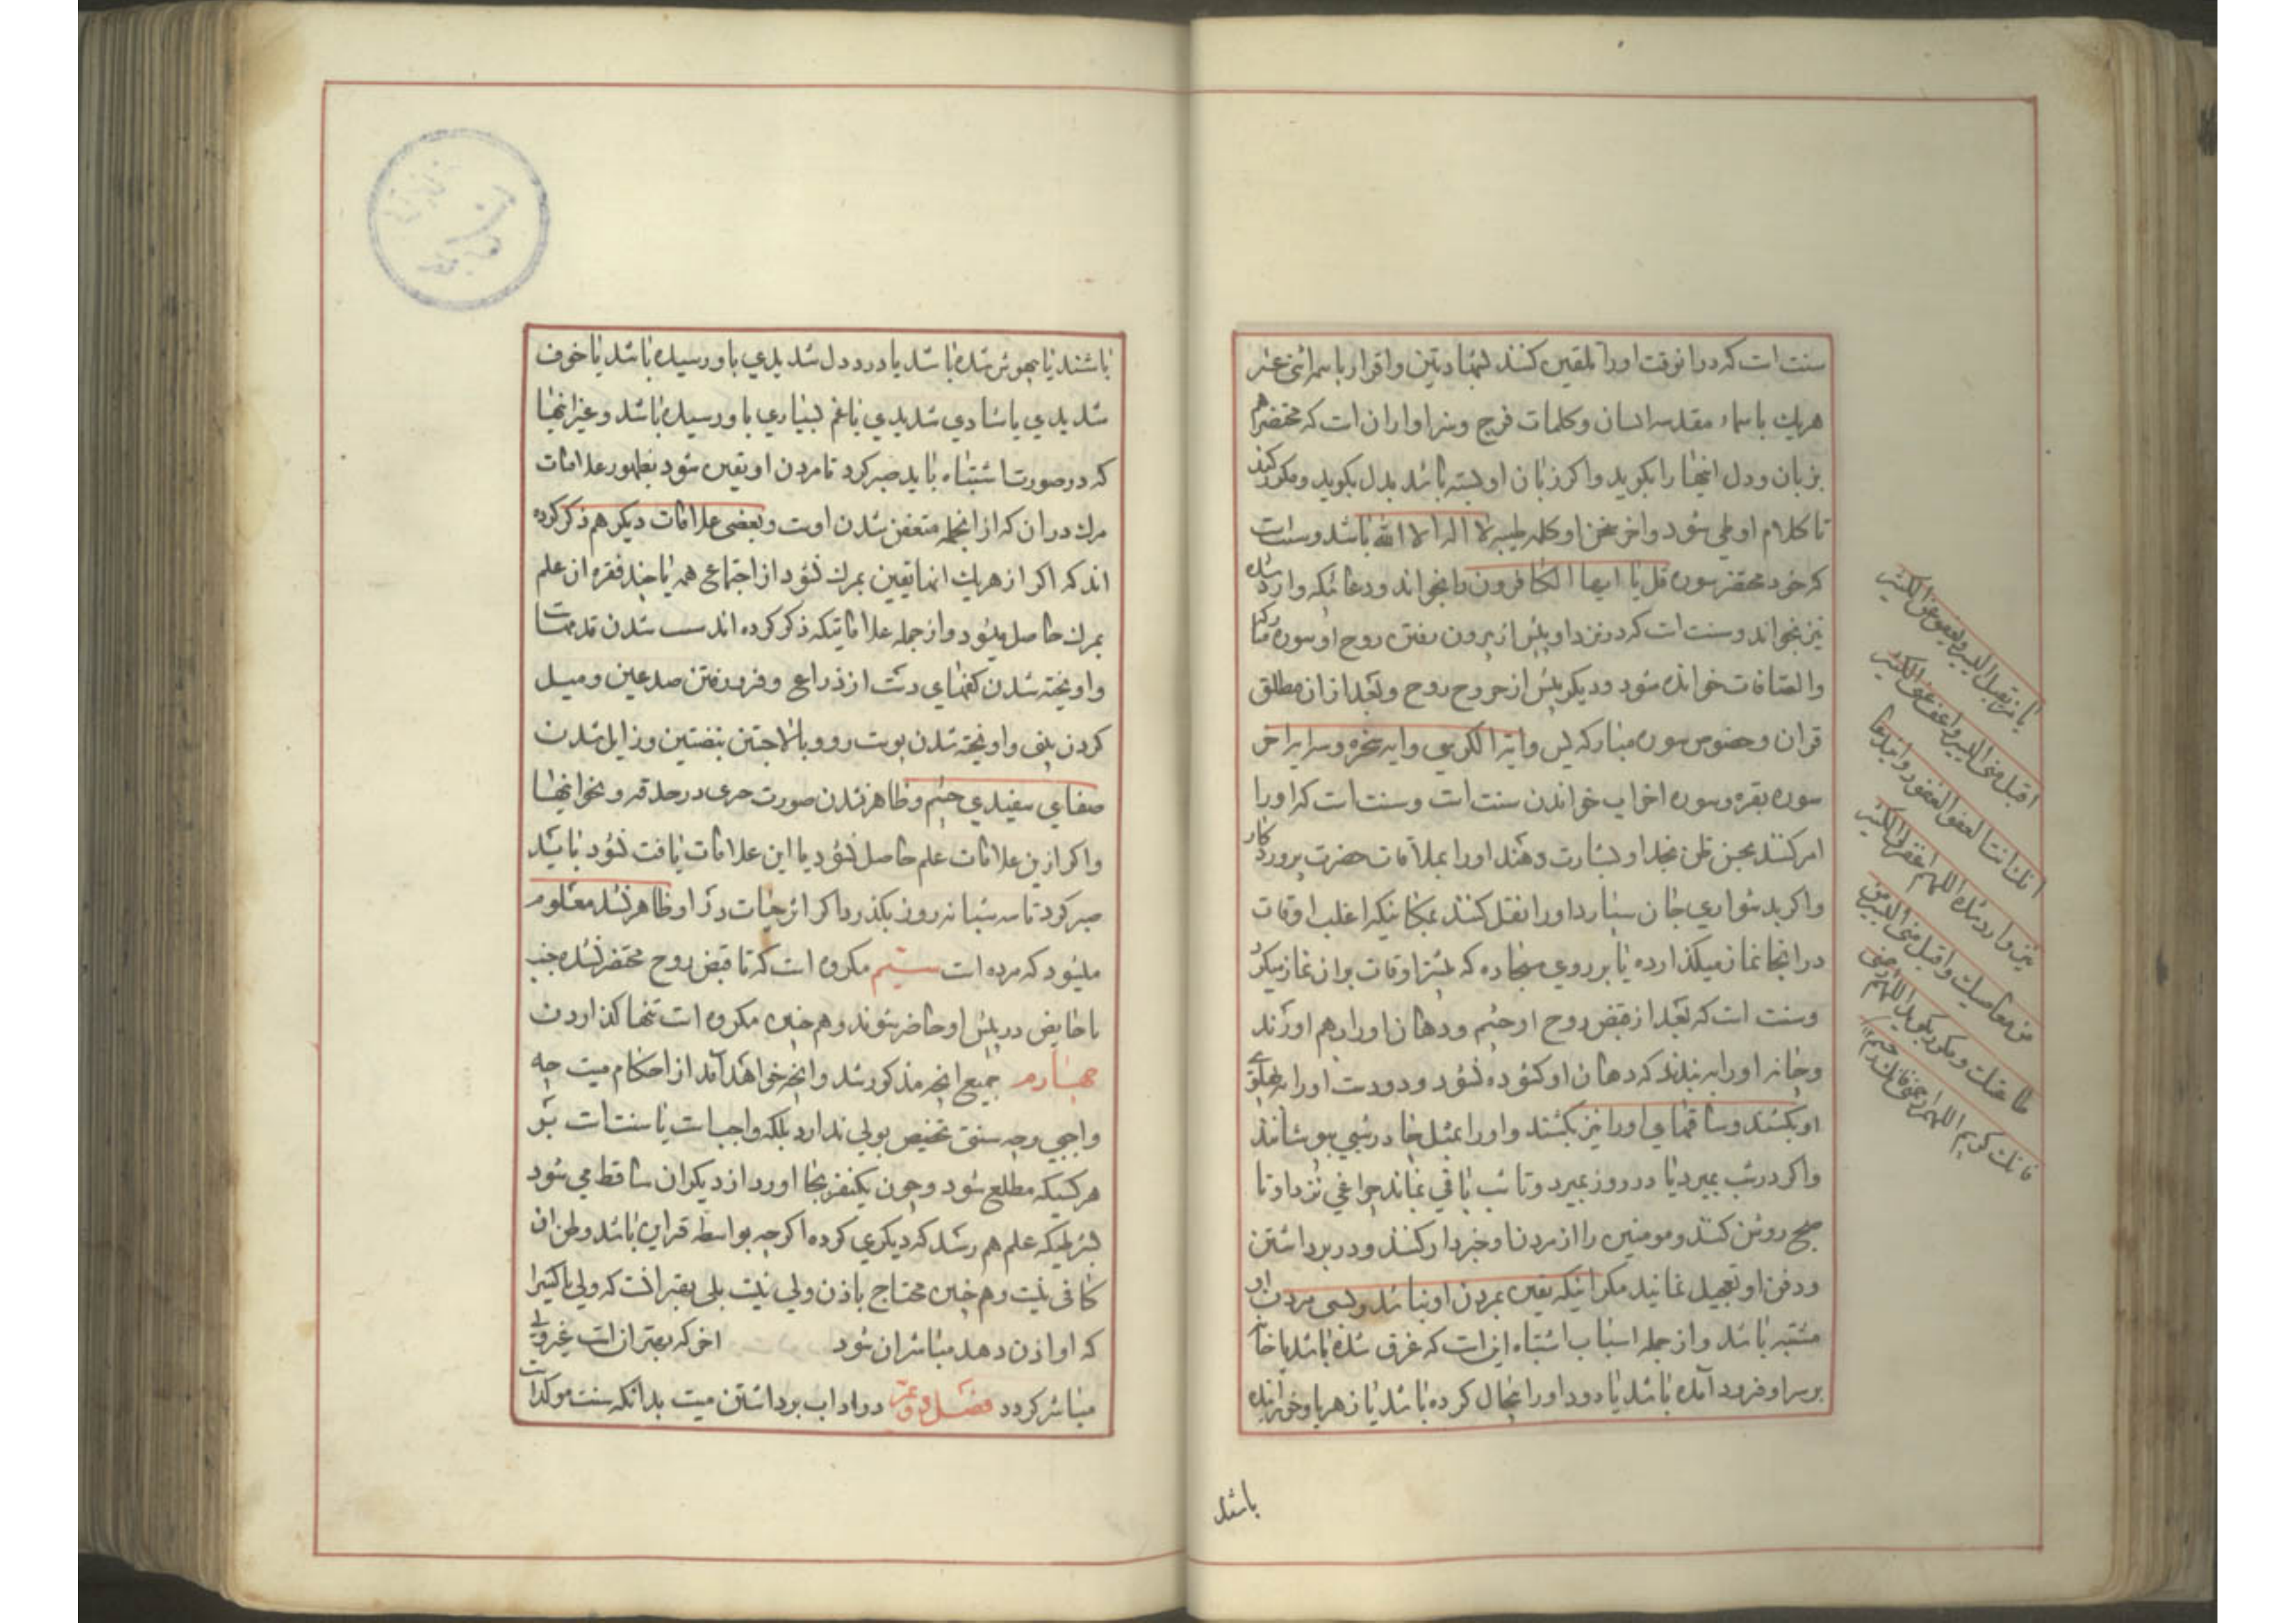 سنت است که در انوقت او را تلقین کنند شهادتین و اقرار باسم اثنی عشر
هریک باسماء مقدسه ایشان و کلمات فرج و سزاوار ان است که محتضر هم
بزبان و دل انها را بگوید و اگر زبان او بسته باشد بدل بگوید و مکرر کنند
تا کلام او طی شود و اخر سخن او کلمه طیبه لا اله الا الله باشد و سنت است
که خود محتضر سوره قل یا ایها الکافرون را بخواند و دعائیکه وارد شده
نیز بخواند و سنت است که در نزد او پیش از بیرون رفتن روح او سوره مبارکه
والصافات خوانده شود و دیگر پیش از خروج روح و بعد از ان مطلق
قران و خصوص سوره مبارکه یس و ایة الکرسی و ایه سخره و سه ایه اخر
سوره بقره و سوره احزاب خواندن سنت است و سنت است که او را
امر کنند بحسن ظن بخدا و بشارت دهند او را بملاقات حضرت پروردکار
و اگر بدشواری جان سپارد او را نقل کنند بمکانیکه اغلب اوقات
در انجا نماز میکذارده یا بر روی سجاده که بیشتر اوقات بران نماز میکرد
و سنت است که بعد از قبض روح او چشم و دهان او را بر هم اورند
و چانه او را به بندند که دهان او کشوده نشود و دو دست او را به پهلوی
او بکشند و ساقهای او را نیز بکشند و او را بمثل چادر شبی بپوشانند
و اگر در شب بمیرد یا در روز بمیرد و تا شب باقی بماند چراغی نزد او تا
صبح روشن کنند و مومنین را از مردن او خبردار کنند و در برداشتن
و دفن او تعجیل نمایند مگر اینکه یقین بمردن او نباشد و بسی مردن او
مشتبه باشد و از جمله اسباب اشتباه این است که غرق شده باشد یا خانه
بر سر او فرود آمده باشد یا دود او را بیحال کرده باشد یا زهر باو خورانیده
یا من یقبل الیسیر و یعفو عن الکثیر
اقبل منی الیسیر و اعف عنی الکثیر
انک انت العفو الغفور و این دعا
نیز وارد شده اللهم اغفر لی الکثیر
من معاصیک و اقبل منی الیسیر من
طاعتک و مکرر بگوید اللهم ارحمنی
فانک کریم اللهم ارحمنی فانک رحیم
باشند
باشند یا بیهوش شده باشد یا درد دل شدیدی باو رسیده باشد یا خوف
شدیدی یا شادی شدیدی یا غم بسیاری باو رسیده باشد و غیر اینها
که در صورت اشتباه باید صبر کرد تا مردن او یقین شود بظهور علامات
مرک در ان که از انجمله متعفن شدن اوست و بعضی علامات دیگر هم ذکر کرده
اند که اگر از هریک انها یقین بمرک نشود از اجتماع همه یا چند فقره ان علم
بمرک حاصل میشود و از جمله علاماتیکه ذکر کرده اند سست شدن قدمها است
و اویخته شدن کفهای دست از ذراع و فرو رفتن صدغین و میل
کردن بینی و اویخته شدن پوست رو و بالا جستن بیضتین و زایل شدن
صفای سفیدی چشم و ظاهر نشدن صورت مرئی در حدقه و نحو اینها
و اگر ازین علامات علم حاصل نشود یا این علامات یافت نشود باید
صبر کرد تا سه شبانه روز بگذرد اگر اثر حیات در او ظاهر نشد معلوم
میشود که مرده است سیم مکروه است که تا قبض روح محتضر نشده جنب
یا حایض در پیش او حاضر شوند و هم چنین مکروه است تنها کذاردن
چهارم جمیع انچه مذکور شد و انچه خواهد آمد از احکام میت چه
واجبی و چه سنتی تخصیص بولی ندارد بلکه واجب است یا سنت است بر
هر کسیکه مطلع شود و چون یکنفر بجا اورد از دیگران ساقط می شود
بشرطیکه علم هم رسد که دیگری کرده اگر چه بواسطه قراین باشد و ظن ان
کافی نیست و هم چنین محتاج باذن ولی نیست بلی بهتر انست که ولی یا کسیرا
که او اذن دهد مباشر ان شود اخر که بهتر ان است غیر ولی
مباشر کردد فصل دویم در اداب برداشتن میت بدانکه سنت موکد است